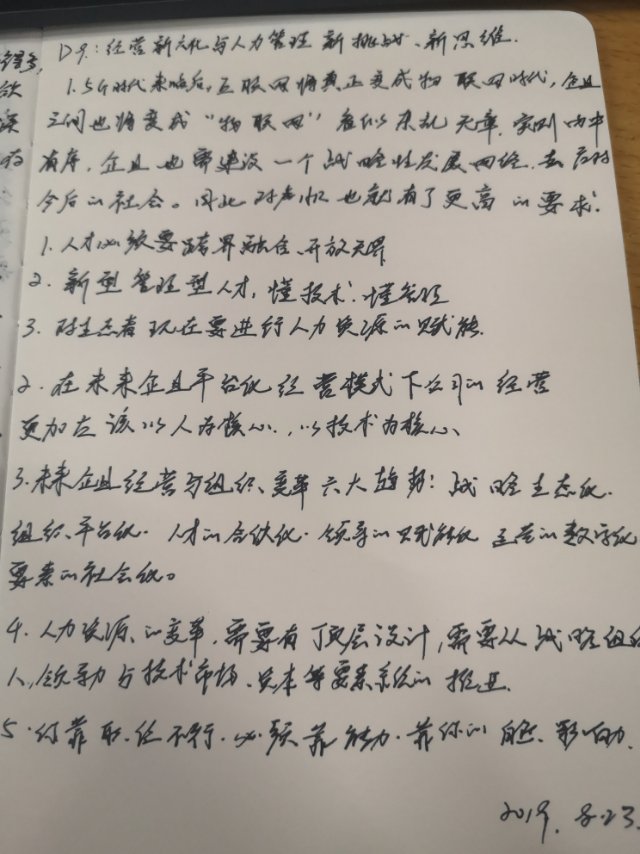 D9：经营新文化与人力管理 新挑战、新思维.
1.5G时代来临后，互联网将真正变成物联网时代，企业
之间也将变成“物联网”看似杂乱无章，实则内中
有序，企业也需建设一个战略性发展网络，去应对
今后的社会。因此对组织也就有了更高的要求.
1.人才必须要跨界融合、开放无界
2.新型管理型人才，懂技术.懂管理
3.对生态者现在要进行人力资源的赋能.
2.在未来企业平台化经营模式下公司的经营
更加应该以人为核心，以技术为核心、
3.未来企业经营与组织、变革六大趋势：战略生态化.
组织平台化.人才的合伙化.领导的赋能化 运营的数字化
要素的社会化。
4.人力资源的变革，需要有顶层设计，需要从战略组织
人，领导力与技术市场、资本等要素系统的推进.
5.仅靠职位不行.必须靠能力.靠你的 影响力.
2019.8.23.